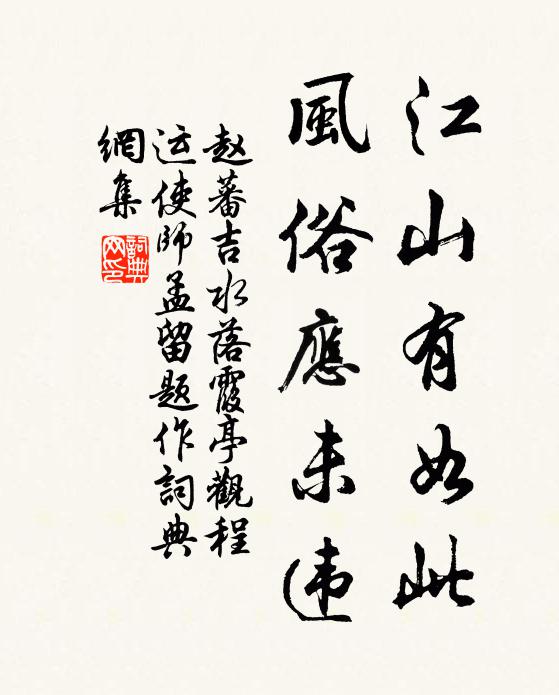 江山有如此
風俗應未违
赵蕃吉水落霞亭觀程
运使師孟留题作詞典
網集
詞典
网印